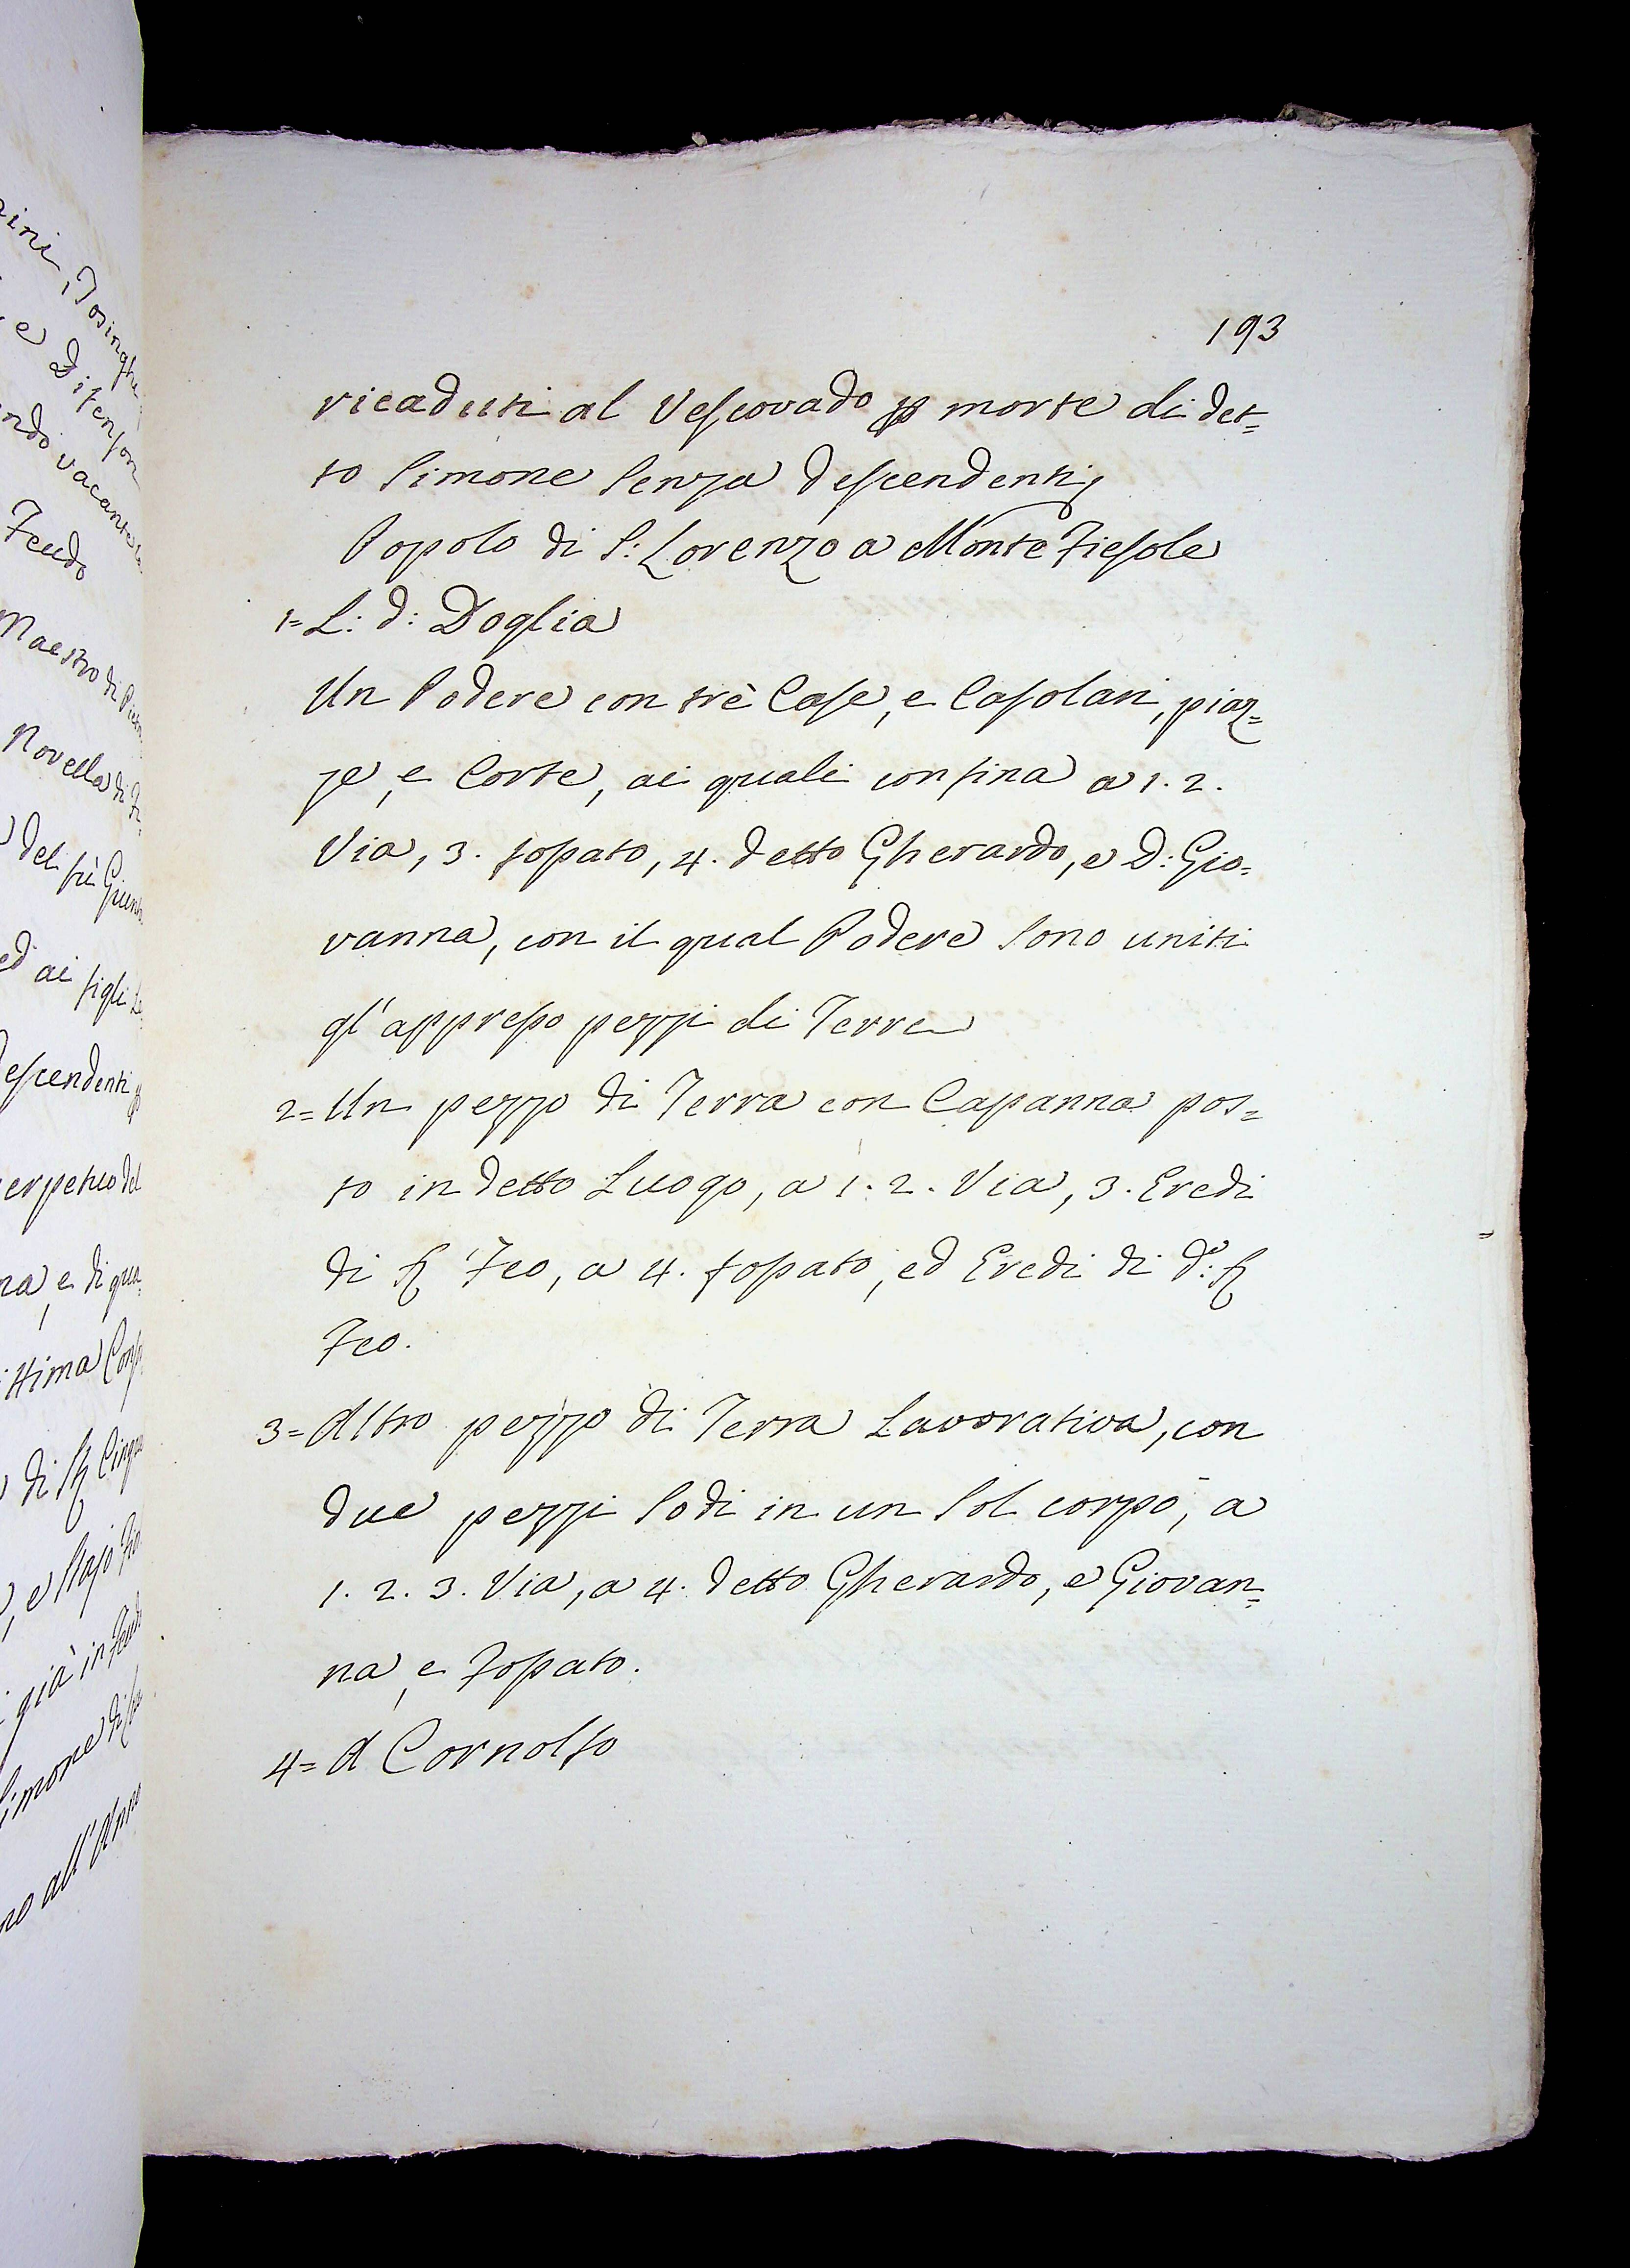 193
ricaduti al Vescovado p morte di det=
to Simone Senza descendenti,
Popolo di S: Lorenzo a Monte Fiesole
1= L: d: Doglia
Un Podere con trè Case, e Casolari, piaz=
ze, e Corte, ai quali confina a 1. 2.
Via, 3. fossato, 4. detto Gherardo, e D: Gio=
vanna, con il qual Podere Sono uniti
gl'appresso pezzi di Terre
2= Un pezzo di Terra con Capanna pos=
to in detto Luogo, a 1. 2. Via, 3. Eredi
di Feo, a 4. fossato, ed Eredi di d:
Feo.
3= Altro pezzo di Terra Lavorativa, con
due pezzi Sodi in un Sol corpo, a
1. 2. 3. Via, a 4. detto Gherardo, e Giovan=
na, e fossato.
4= A Cornolfo